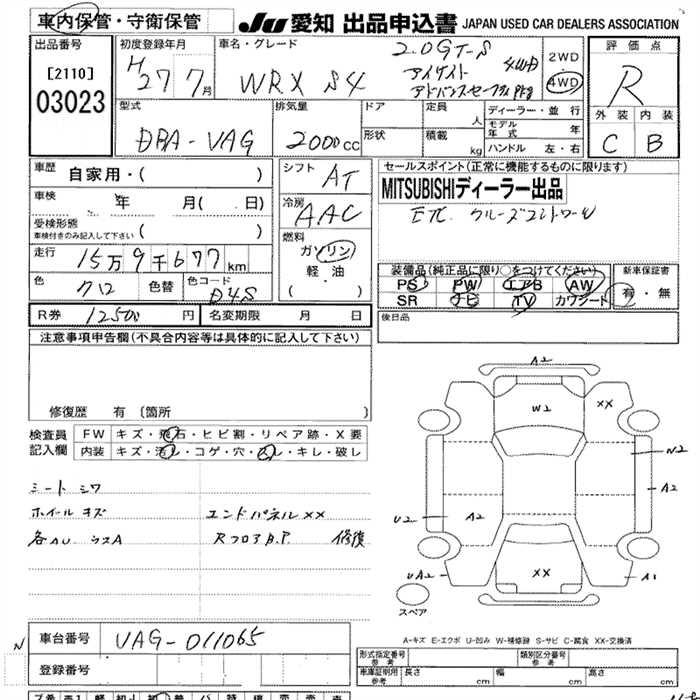 車内保管・守衛保管
JU 愛知 出品申込書 JAPAN USED CAR DEALERS ASSOCIATION
出品番号
[2110]
03023
初度登録年月
H 27 7月
車名・グレード
WRX S4
2.0GT-S
アイサイト 4WD
アドバンスセーフティpkg
2WD
4WD
評価点
R
外装 内装
C B
型式
DBA-VAG
排気量
2000cc
ドア
形状
定員 人
積載 kg
ディーラー・並行
モデル年式 年
ハンドル 左・右
車歴
自家用・( )
車検 年 月( 日)
受検形態
車検付きのみ記入して下さい ( )
走行
15万9千677km
色
クロ
色替
色コード
D4S
シフト
AT
冷房
AAC
燃料
ガソリン
軽油
( ・ )
セールスポイント(正常に機能するものに限ります)
MITSUBISHIディーラー出品
ETC. クルーズコントロール
装備品(純正品に限り○をつけてください)
PS PW エアB AW
SR ナビ TV カワシート
新車保証書
有・無
R券 12500円
名変期限 月 日
後日品
注意事項申告欄(不具合内容等は具体的に記入して下さい)
修復歴 有 〔箇所 〕
検査員
記入欄
FW キズ・飛石・ヒビ割・リペア跡・X要
内装 キズ・汚レ・コゲ・穴・スレ・キレ・破レ
シート シワ
ホイール キズ
エンドパネルXX
Rフロア B.P 修復
A2
W2
XX
W2
A2
A2
U2
UA2
XX
A1
スペア
A-キズ E-エクボ U-凹み W-補修跡 S-サビ C-腐食 XX-交換済
車台番号
VAG-011065
登録番号
N
形式指定番号
参考
類別区分番号
参考
車庫証明用
参考
長さ cm
幅 cm
高さ cm